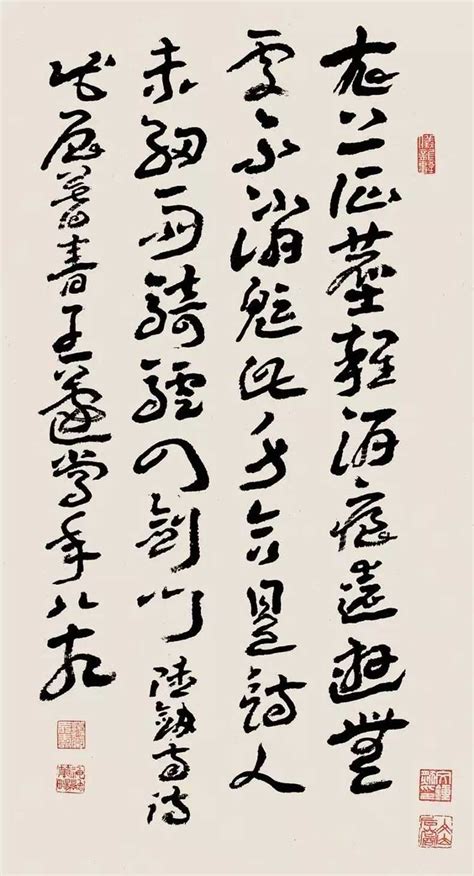 衣上征塵雜酒痕遠遊無
處不消魂此身合是詩人
未細雨騎驢入劍門 陸劍南詩
戊辰暮春王蘧常年八九